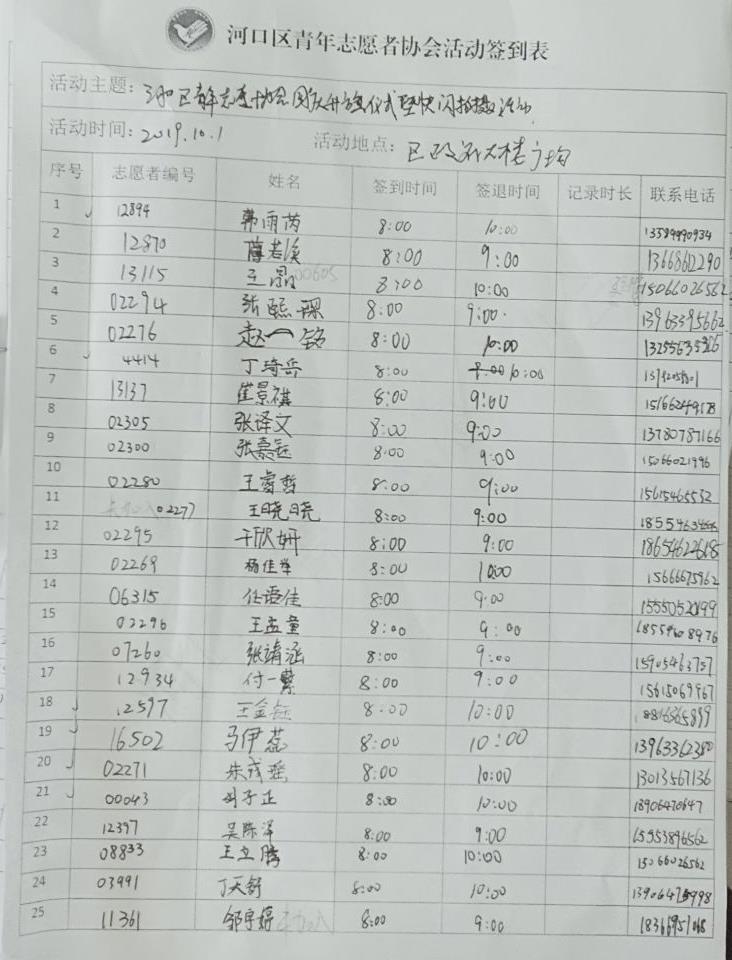 河口区青年志愿者协会活动签到表
活动主题: 河口区青年志愿者协会国庆升旗仪式暨快闪拍摄活动
活动时间: 2019.10.1 活动地点: 区政府大楼广场
序号 志愿者编号 姓名 签到时间 签退时间 记录时长 联系电话
1 12894 韩雨芮 8:00 10:00
2 12870 薛若溪 8:00 9:00 13668602290
3 13115 王晶 00605 8:00 10:00 15066026562
4 02294 张熙琛 8:00 9:00 13963395662
5 02276 赵一铭 8:00 10:00
6 4414 丁琦岳 8:00 10:00
7 13137 崔景祺 8:00 9:00
8 02305 张译文 8:00 9:00 13780787166
9 02300 张嘉钰 8:00 9:00 15066021996
10 02280 王睿哲 8:00 9:00 15615465532
11 02277 王晓晓 8:00 9:00
12 02295 于欣妍 8:00 9:00
13 02269 杨佳举 8:00 10:00 15666675962
14 06315 任语佳 8:00 9:00 15550520199
15 02296 王孟童 8:00 9:00
16 07260 张靖涵 8:00 9:00 15905463757
17 12934 付一繁 8:00 9:00 15615069967
18 12597 王金钰 8:00 10:00
19 16502 马伊蕊 8:00 10:00
20 02271 朱宬瑶 8:00 10:00 13013567136
21 00043 刘子正 8:00 10:00 13906470647
22 12397 吴陈泽 8:00 9:00 15953896562
23 08833 王立腾 8:00 10:00 15066026562
24 03991 丁天舒 8:00 10:00
25 11361 邹宇婷 未加入 8:00 9:00